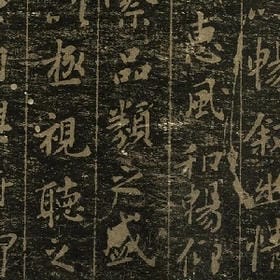 暢叙幽情
惠風和暢仰
察品類之盛
極視聽之